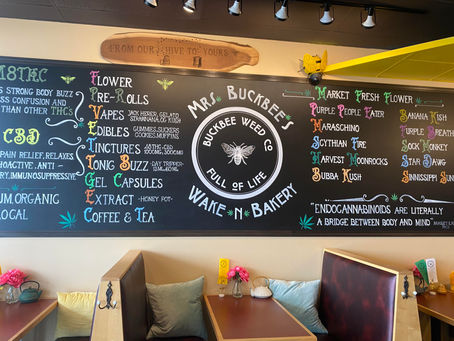 FROM OUR HIVE TO YOURS
8THC
STRONG BODY BUZZ
SS CONFUSION AND
THAN OTHER THCS
CBD
PAIN RELIEF, RELAXES
OACTIVE, ANTI-
RY, IMMUNOSUPPRESSIVE
UM, ORGANIC
LOCAL
FLOWER
PRE-ROLLS
VAPES
EDIBLES GUMMIES, SUCKERS
COOKIES, MUFFINS
TINCTURES
1000MG, 3000MG
TONIC BUZZ -DAY TRIPPER
GEL CAPSULES
EXTRACT -HONEY POT-
COFFEE & TEA
MRS. BUCKBEE'S
BUCKBEE WEED CO
FULL OF LIFE
WAKE-N-BAKERY
MARKET FRESH FLOWER
PURPLE PEOPLE EATER
MARASCHINO
SCYTHIAN FIRE
HARVEST MOONROCKS
BUBBA KUSH
BANANA KUSH
PURPLE BREATH
SOCK MONKEY
STAR DAWG
SINNISSIPPI
"ENDOCANNABINOIDS ARE LITERALLY
A BRIDGE BETWEEN BODY AND MIND"